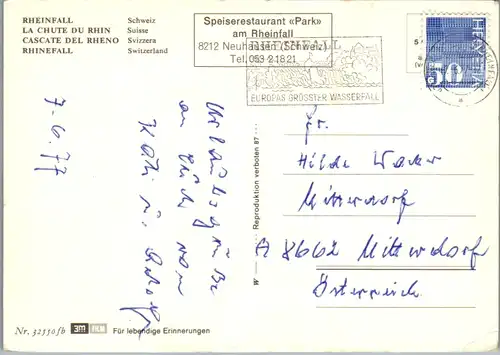 RHEINFALL Schweiz
LA CHUTE DU RHIN Suisse
CASCATE DEL RHENO Svizzera
RHINEFALL Switzerland
Speiserestaurant «Park»
am Rheinfall
8212 Neuhausen (Schweiz)
Tel. 053 2 18 21
RHEINFALL
EUROPAS GRÖSSTER WASSERFALL
HELVETIA
50
7.6.77
Urlaubsgrüße
an Euch von
Reproduktion verboten 87
W
Fr.
Hilde
Mitterdorf
A 8662 Mitterdorf
Österreich
Nr. 32550fb 3M FILM Für lebendige Erinnerungen